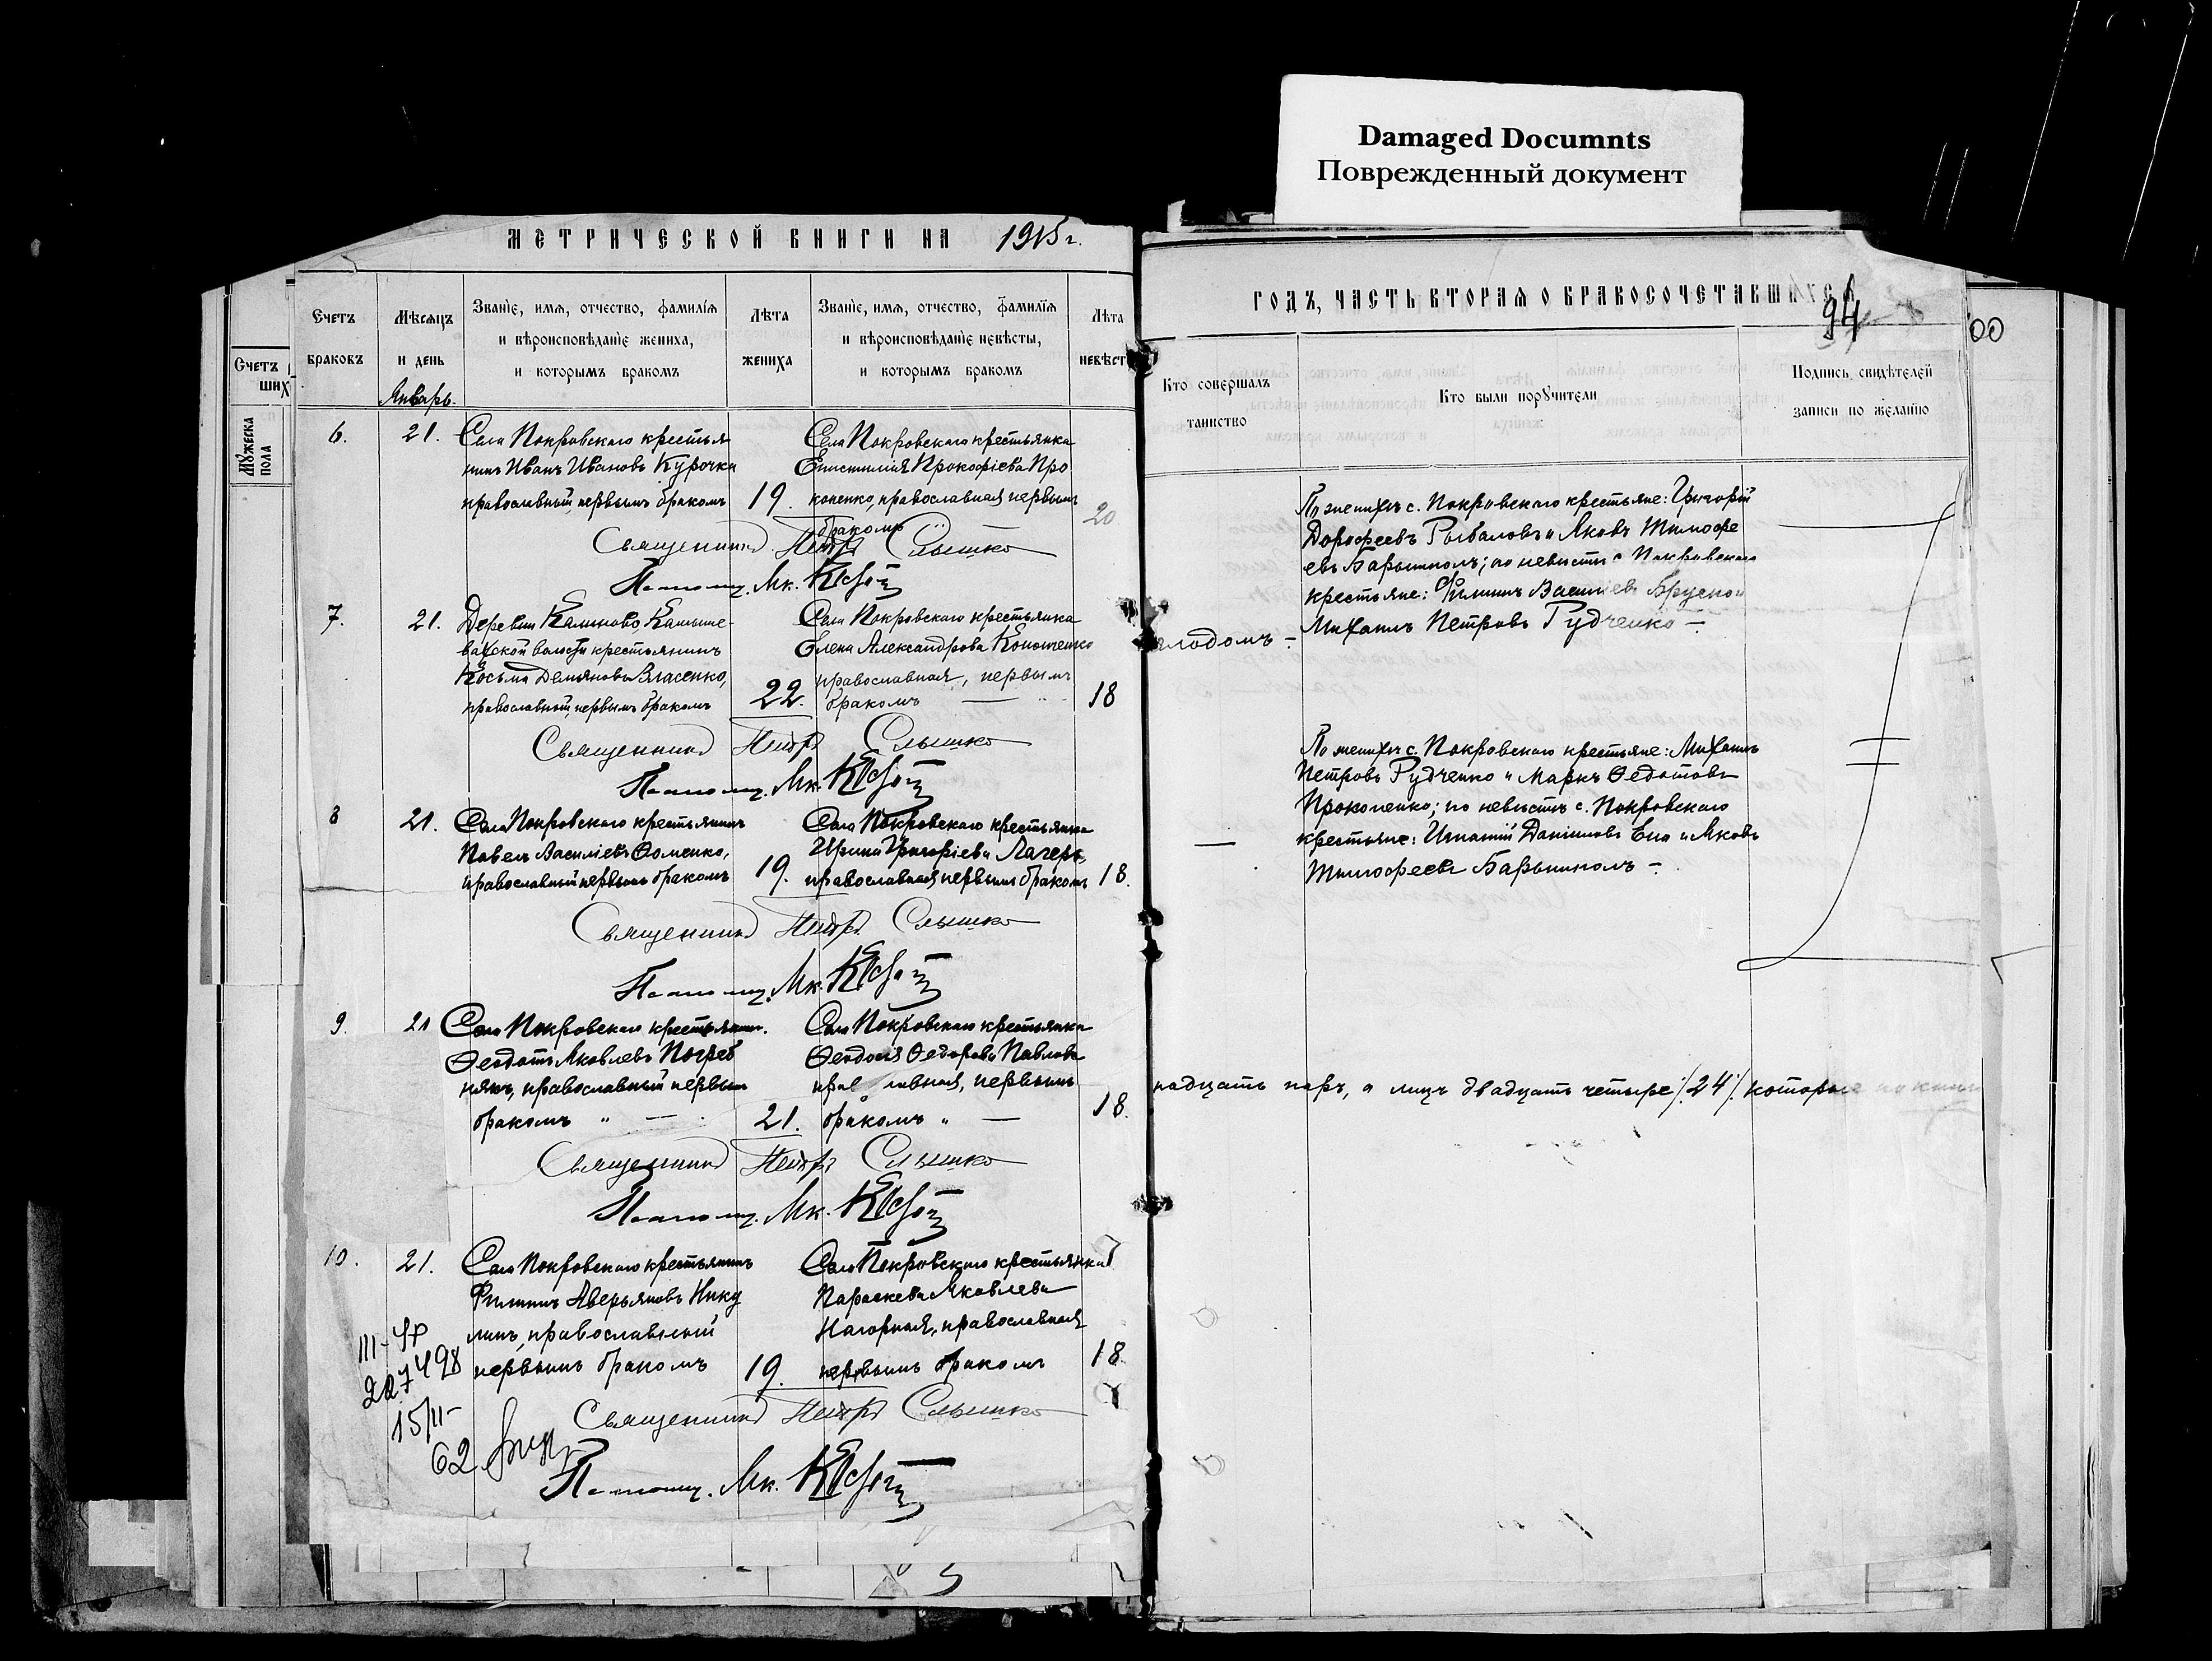 Damaged Documnts
Поврежденный документ
МЕТРИЧЕСКОЙ КНИГИ НА 1915 г.
Счетъ браковъ
Мѣсяцъ и день
Январь.
Званіе, имя, отчество, фамилія
и вѣроисповѣданіе жениха,
и которымъ бракомъ
Лѣта жениха
Званіе, имя, отчество, фамилія
и вѣроисповѣданіе невѣсты,
и которымъ бракомъ
Лѣта невѣст
Счетъ
ших
Мужеска
пола
6. 21.
Села Покровскаго крестья
нинъ Иванъ Ивановъ Курочка
православный, первымъ бракомъ
19.
Села Покровскаго крестьянка
Епистимія Прокофіева Про
коненко, православная первымъ
бракомъ
20
Священникъ Петръ Слышко
7. 21.
Деревни Калиново, Камыше-
вахской волости крестьянинъ
Косьма Демьяновъ Власенко,
православный, первымъ бракомъ
22.
Села Покровскаго крестьянка
Елена Александрова Кононенко
православная, первымъ
бракомъ
18
Священникъ Петръ Слышко
8 21.
Села Покровскаго крестьянинъ
Павелъ Василіевъ Фоменко,
православный первымъ бракомъ
19.
Села Покровскаго крестьянка
Ирина Григоріева Лагерь,
православная первымъ бракомъ
18.
Священникъ Петръ Слышко
9. 21
Села Покровскаго крестьянинъ.
Ѳеодотъ Яковлевъ Погреб
някъ, православный первым
бракомъ " —
21.
Села Покровскаго крестьянка
Ѳеодосія Ѳедорова Павлова
прав лавная, первымъ
бракомъ " —
18.
Священникъ Петръ Слышко
10. 21.
Села Покровскаго крестьянинъ
Филиппъ Аверьяновъ Нику
линъ, православный
первымъ бракомъ
19.
Села Покровскаго крестьянка
Параскева Яковлева
Нагорная, православная
первымъ бракомъ
18.
Священникъ Петръ Слышко
227498
15/II-
62
ГОДЪ, ЧАСТЬ ВТОРАЯ О БРАКОСОЧЕТАВШИХСЯ
94
00
Кто совершалъ
таинство
Кто были поручители
Подпись свидѣтелей
записи по желанію
По женихѣ с. Покровскаго крестьяне: Григорій
Дорофеевъ Рыбаловъ и Яковъ Тимофе
евъ Барынколъ; по невѣстѣ с Покровскаго
крестьяне: Филиппъ Василіевъ
Михаилъ Петровъ Рудченко —.
По женихѣ с. Покровскаго крестьяне: Михаилъ
Петровъ Рудченко и Маркъ Ѳедотовъ
Прокопенко; по невѣстѣ с. Покровскаго
крестьяне: Игнатій Даніиловъ и Яковъ
Тимофеевъ Барынколъ —.
надцать паръ, а лицъ двадцать четыре /24/. которые